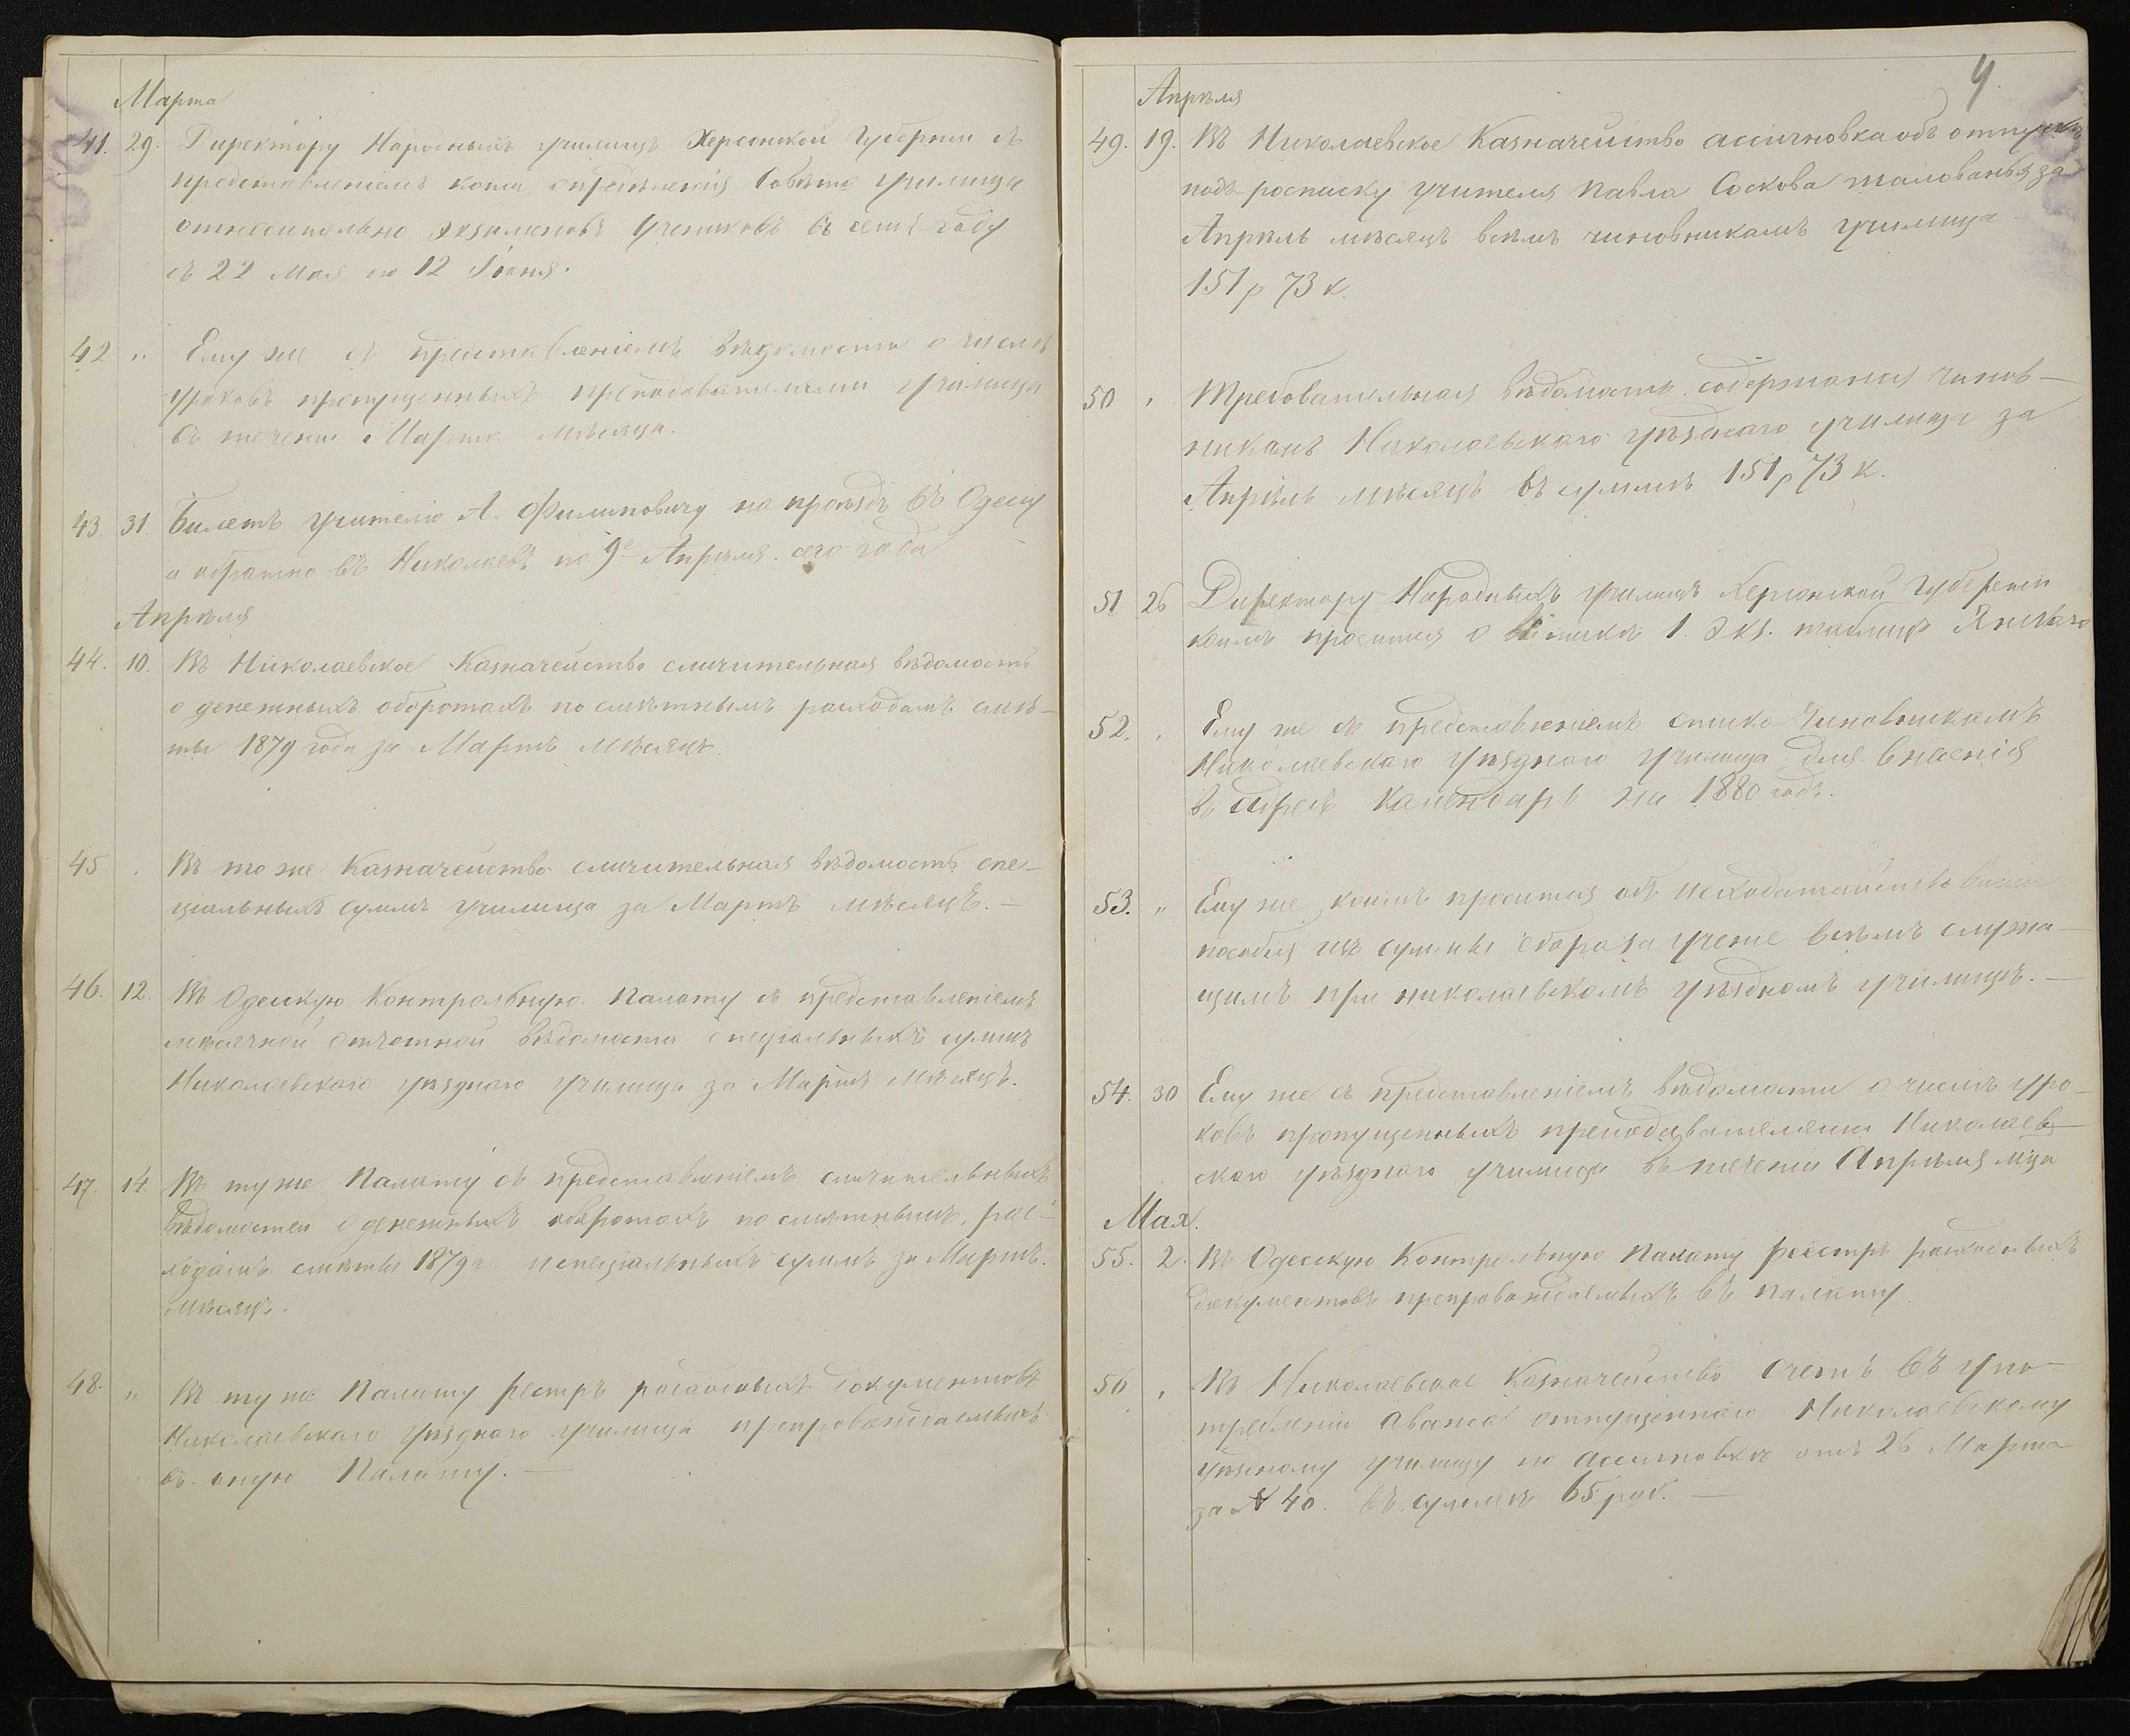 Марта
41. 29. Директору Народныхъ училищъ Херсонской Губерніи съ
представленіемъ копіи опредѣленія Совѣта училища
относительно экзаменовъ Учениковъ въ семъ году
съ 22 Мая по 12 Іюня.
42 " Ему же съ представленіемъ вѣдомости о числѣ
уроковъ пропущенныхъ преподавателями училища
въ теченіи Марта мѣсяца.
43 31. Билетъ учителю А. Филиповичу на проѣздъ въ Одессу
и обратно въ Николаевъ по 9е Апрѣля сего года
Апрѣля
44. 10. Въ Николаевское Казначейство сличительная вѣдомость
о денежныхъ оборотахъ по смѣтнымъ расходамъ смѣ-
ты 1879 года за Мартъ мѣсяцъ.
45 . Въ то же Казначейство сличительная вѣдомость спе-
ціальныхъ суммъ училища за Мартъ мѣсяцъ. —
46. 12. Въ Одесскую Контрольную Палату съ представленіемъ
мѣсячной отчетной вѣдомости спеціальныхъ суммъ
Николаевскаго уѣзднаго училища за Мартъ мѣсяцъ.
47. 14. Въ ту же Палату съ представленіемъ сличительныхъ
вѣдомостей о денежныхъ оборотахъ по смѣтнымъ рас-
ходамъ смѣты 1879 г. и спеціальныхъ суммъ за Мартъ
мѣсяцъ.
48. " Въ ту же Палату рестръ расходовыхъ документовъ
Николаевскаго уѣзднаго училища препровождаемыхъ
въ оную Палату. —
4
Апрѣля
49. 19. Въ Николаевское Казначейство ассигновка объ отпускѣ
подъ росписку учителя Павла Соскова жалованья за
Апрѣль мѣсяцъ всѣмъ чиновникамъ училища
151 р 73 к.
50 , Требовательная вѣдомость содержанія чинов-
никамъ Николаевскаго уѣзднаго училища за
Апрѣль мѣсяцъ въ суммѣ 151 р 73 к.
51 26 Директору Народныхъ училищъ Херсонской Губерніи
коимъ просится о 1. экз. таблицъ
52. , Ему же съ представленіемъ списка Чиновникамъ
Николаевскаго уѣзднаго училища для внесенія
въ адресъ Календарь на 1880 годъ.
53. " Ему же коимъ просится объ исходатайствованіи
пособія изъ суммы сбора за ученіе всѣмъ служа-
щимъ при николаевскомъ уѣздномъ училищѣ. —
54. 30 Ему же съ представленіемъ вѣдомости о числѣ уро-
ковъ пропущенныхъ преподавателями Николаев-
скаго уѣзднаго училища въ теченіи Апрѣля мца
Мая.
55. 2. Въ Одесскую Контрольную Палату реестръ расходныхъ
документовъ препровождаемыхъ въ палату.
56 , Въ Николаевское Казначейство Счетъ въ упо-
требленіи Аванса отпущеннаго Николаевскому
уѣздному училищу по ассигновкѣ отъ 26 Марта
за № 40. въ суммѣ 65 руб. —